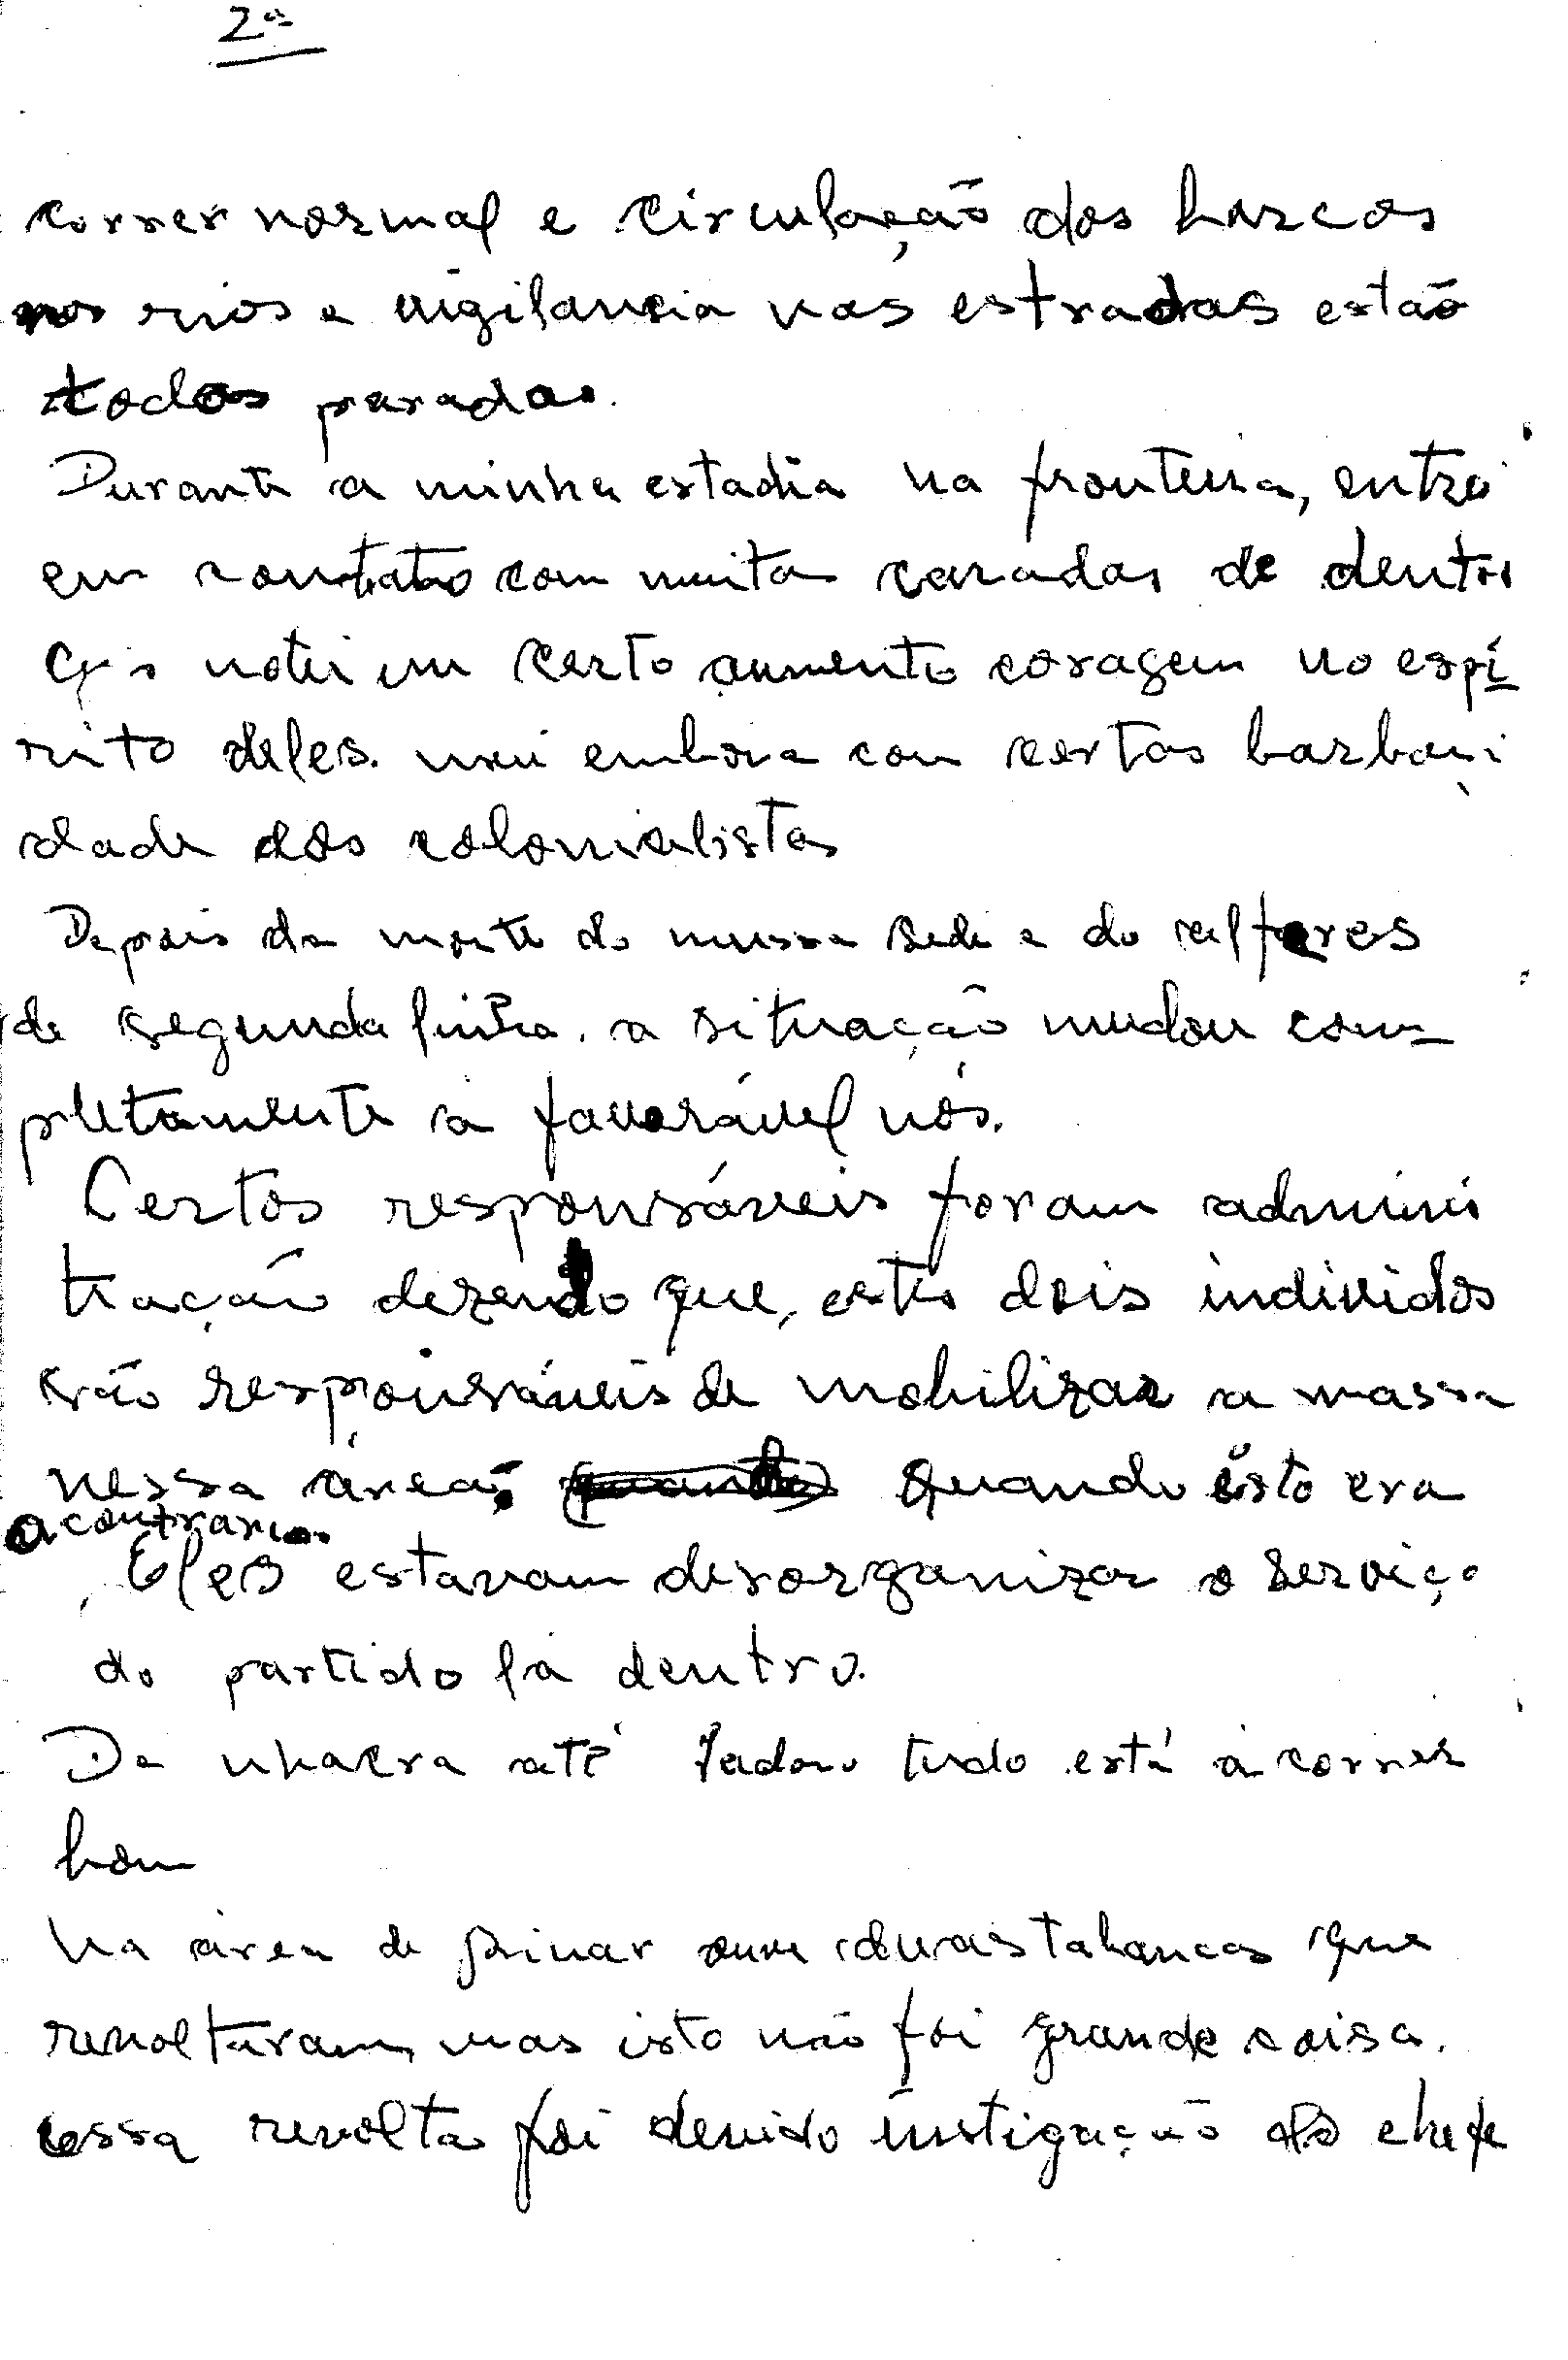 2ª
correr normal e circulação dos barcos
nos rios e vigilancia nas estradas estão
todos paradas.
Durante a minha estadia na fronteira, entrei
em contato com muita caradas de dentro
notei um certo aumento coragem no espí-
rito deles. embora com certas barbari
dade dos colonialistas
Depois da morte do mussa e do alferes
de segunda linha. a situação mudou com-
pletamente a favorável nós.
Certos responsáveis foram adminis
tração dezendo que, estes dois individos
são responsáveis de mobilizar a massa
nessa área, quando isto era
a contrario.
Eles estavam desorganizar o serviço
do partido lá dentro.
De nhacra até tudo está a correr
bom
Na área de duas tabancas que
revoltaram, mas isto não foi grande coisa.
essa revolta foi devido instigação do chefe